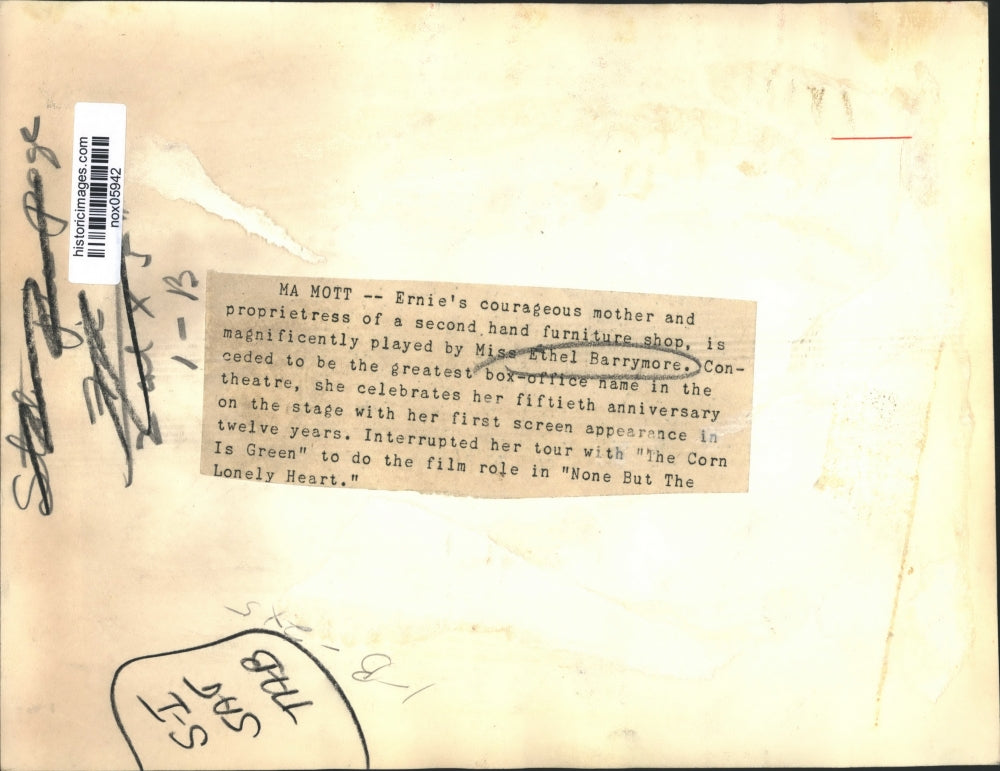 historicimages.com
nox05942
1-B
MA MOTT -- Ernie's courageous mother and
proprietress of a second hand furniture shop, is
magnificently played by Miss Ethel Barrymore. Con-
ceded to be the greatest box-office name in the
theatre, she celebrates her fiftieth anniversary
on the stage with her first screen appearance in
twelve years. Interrupted her tour with "The Corn
Is Green" to do the film role in "None But The
Lonely Heart."
1-B - 2x5
TAB
SAT
S-I